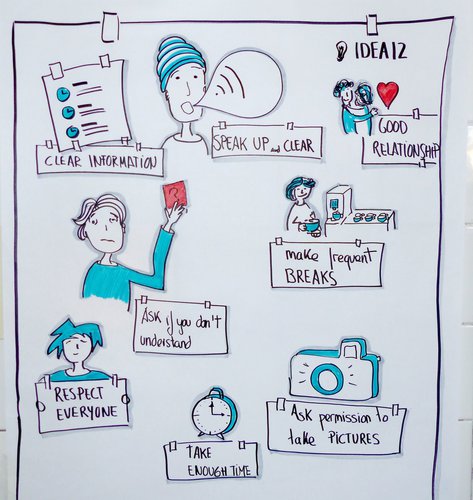 IDEA12
CLEAR INFORMATION
SPEAK UP and CLEAR
GOOD
RELATIONSHIP
?
make frequent
BREAKS
ASK if you don't
understand
RESPECT
EVERYONE
TAKE
ENOUGH TIME
Ask permission to
take PICTURES